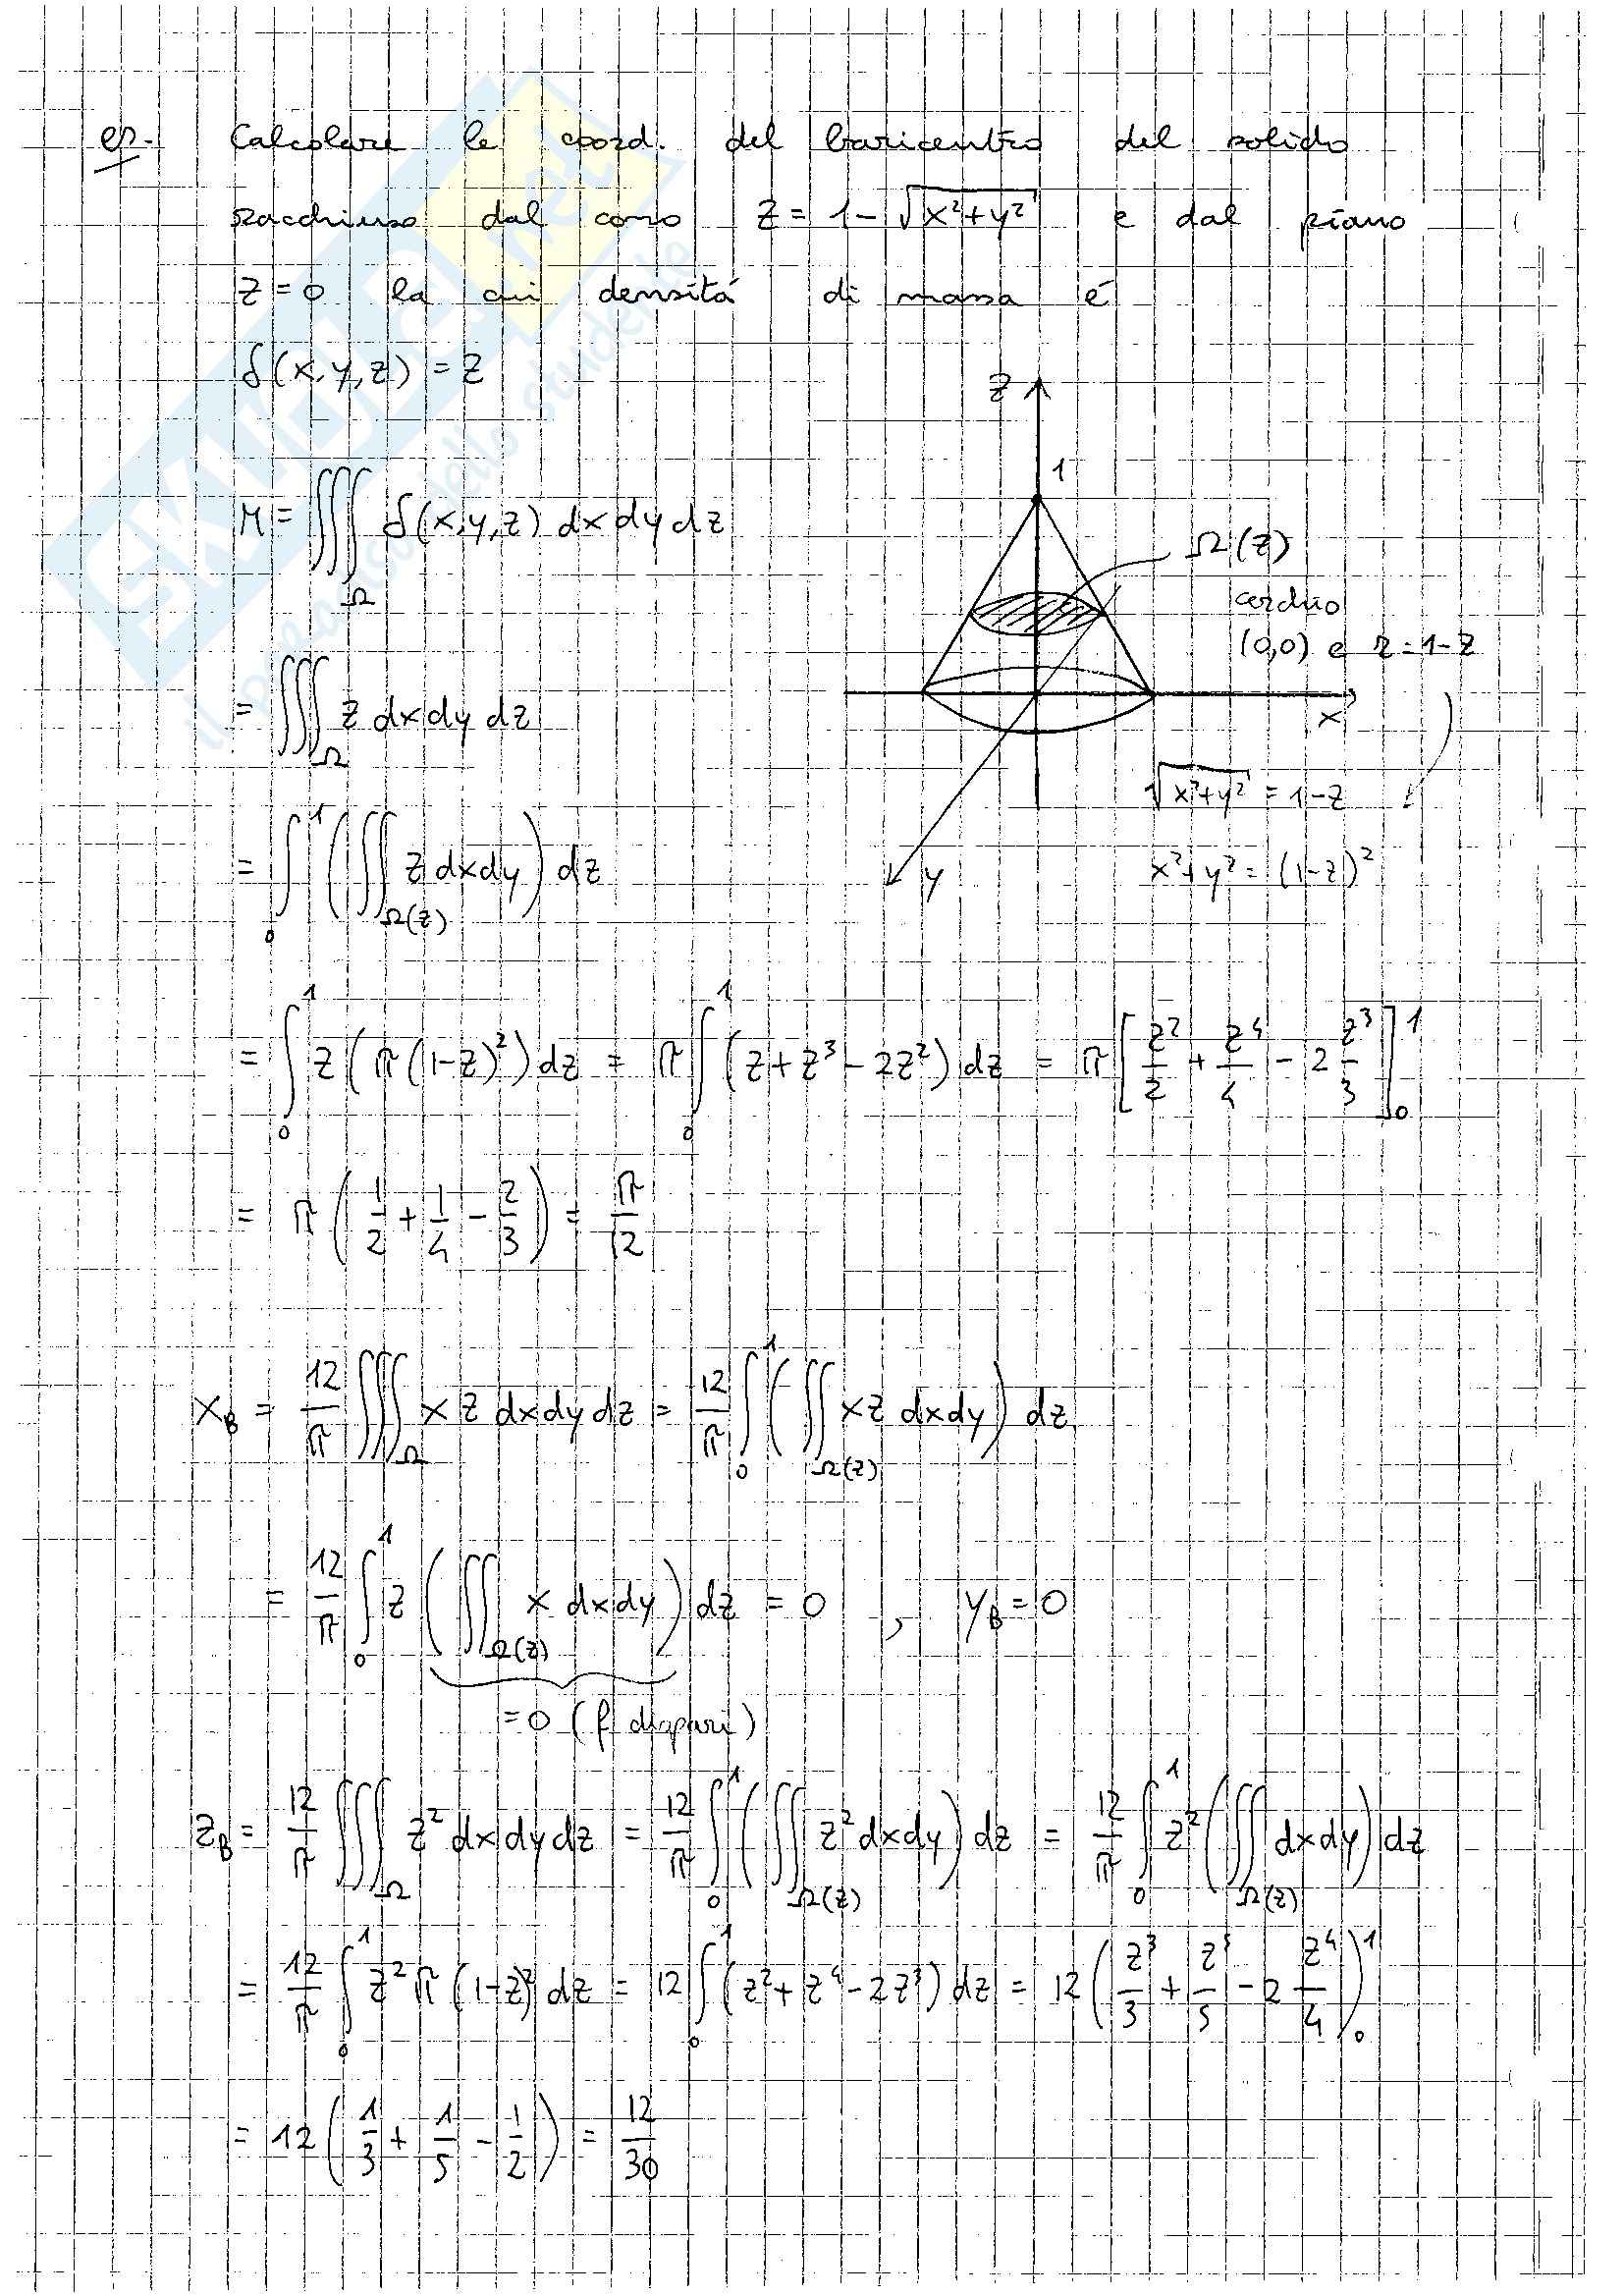 es. Calcolare le coord. del baricentro del solido
racchiuso dal cono z = 1 - √(x²+y²) e dal piano
z = 0 la cui densitá di massa é
δ(x,y,z) = z
z
1
M = ∭_Ω δ(x,y,z) dx dy dz
Ω(z)
cerchio
(0,0) e r = 1-z
= ∭_Ω z dx dy dz
x
√(x²+y²) = 1-z
= ∫₀¹ (∬_Ω(z) z dx dy) dz
y
x²+y² = (1-z)²
= ∫₀¹ z (π (1-z)²) dz = π ∫₀¹ (z + z³ - 2z²) dz = π [z²/2 + z⁴/4 - 2 z³/3]₀¹
= π (1/2 + 1/4 - 2/3) = π/12
x_B = 12/π ∭_Ω x z dx dy dz = 12/π ∫₀¹ (∬_Ω(z) xz dx dy) dz
= 12/π ∫₀¹ z (∬_Ω(z) x dx dy) dz = 0 , y_B = 0
= 0 (f dispari)
z_B = 12/π ∭_Ω z² dx dy dz = 12/π ∫₀¹ (∬_Ω(z) z² dx dy) dz = 12/π ∫₀¹ z² (∬_Ω(z) dx dy) dz
= 12/π ∫₀¹ z² π (1-z)² dz = 12 ∫₀¹ (z² + z⁴ - 2z³) dz = 12 (z³/3 + z⁵/5 - 2 z⁴/4)₀¹
= 12 (1/3 + 1/5 - 1/2) = 12/30